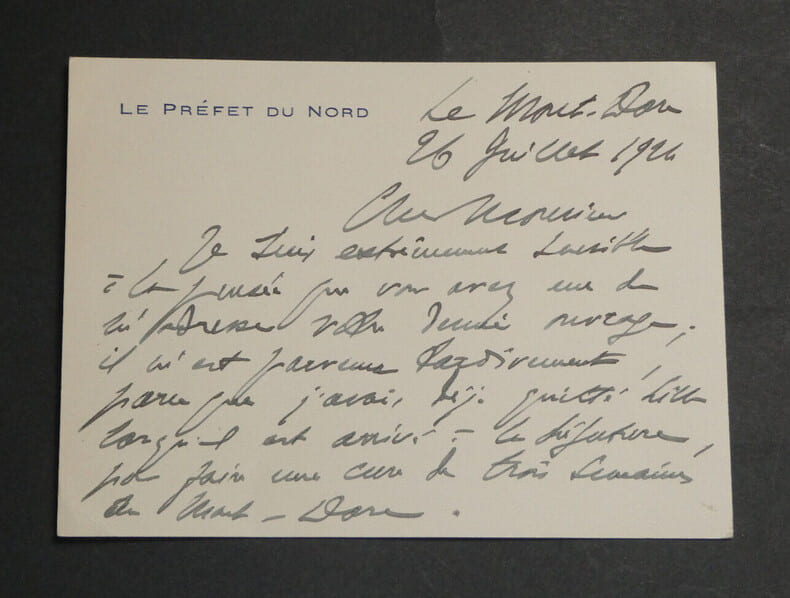 LE PRÉFET DU NORD
Le Mont-Dore
26 Juillet 192
Cher Monsieur
Je suis extrêmement sensible
à la pensée que vous avez eue de
m'adresser votre dernier ouvrage ;
il m'est parvenu tardivement,
parce que j'avais déjà quitté Lille
lorsqu'il est arrivé à la Préfecture,
pour faire une cure de trois semaines
au Mont-Dore.